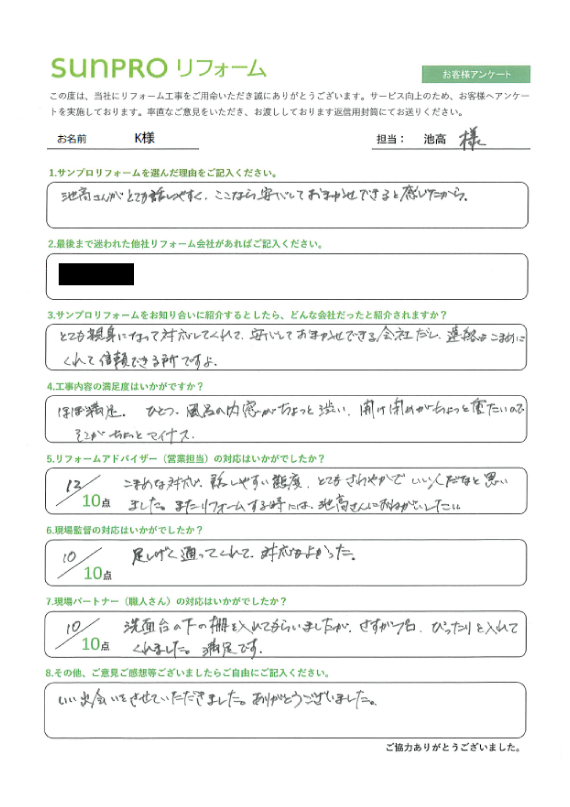 SUNPRO リフォーム
お客様アンケート
この度は、当社にリフォーム工事をご用命いただき誠にありがとうございます。サービス向上のため、お客様へアンケー
トを実施しております。率直なご意見をいただき、お渡ししております返信用封筒にてお送りください。
お名前 K様 担当： 池高 様
1.サンプロリフォームを選んだ理由をご記入ください。
池高さんがとても話しやすく、ここなら安心しておまかせできると感じたから。
2.最後まで迷われた他社リフォーム会社があればご記入ください。
3.サンプロリフォームをお知り合いに紹介するとしたら、どんな会社だったと紹介されますか？
とても親身になって対応してくれて、安心しておまかせできる会社だし、連絡もこまめに
くれて信頼できる所ですよ。
4.工事内容の満足度はいかがですか？
ほぼ満足。 ひとつ、風呂の内窓がちょっと渋い、開け閉めがちょっと重たいので
そこがちょっとマイナス。
5.リフォームアドバイザー（営業担当）の対応はいかがでしたか？
12/10点 こまめな対応、話しやすい態度、とてもさわやかでいい人だなと思い
ました。またリフォームする時には、池高さんにおねがいしたい
6.現場監督の対応はいかがでしたか？
10/10点 足しげく通ってくれて、対応もよかった。
7.現場パートナー（職人さん）の対応はいかがでしたか？
10/10点 洗面台の下の棚を入れてもらいましたが、さすがプロ、ぴったりと入れて
くれました。満足です。
8.その他、ご意見ご感想等ございましたらご自由にご記入ください。
いい出会いをさせていただきました。ありがとうございました。
ご協力ありがとうございました。